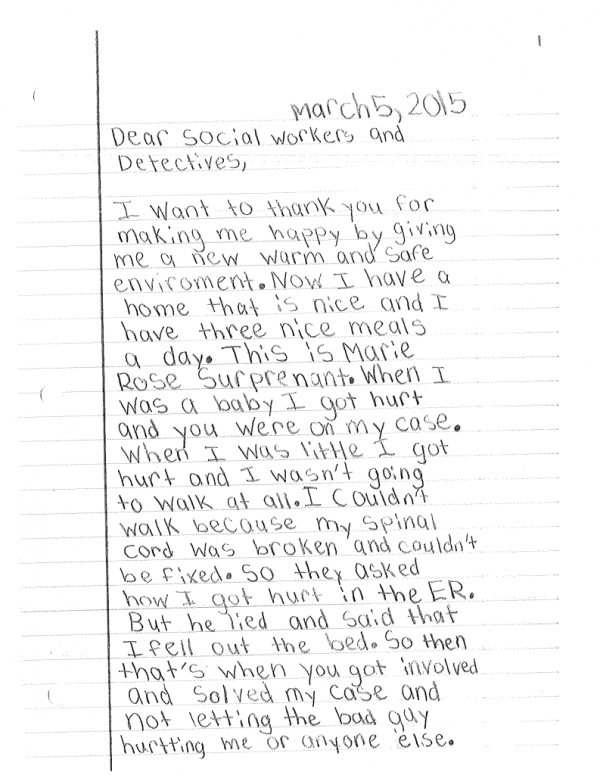 1
March 5, 2015
Dear Social workers and
Detectives,
I want to thank you for
making me happy by giving
me a new warm and safe
enviroment. Now I have a
home that is nice and I
have three nice meals
a day. This is Marie
Rose Surprenant. When I
was a baby I got hurt
and you were on my case.
When I was little I got
hurt and I wasn't going
to walk at all. I Couldn't
walk because my spinal
cord was broken and couldn't
be fixed. So they asked
how I got hurt in the ER.
But he lied and said that
I fell out the bed. So then
that's when you got involved
and solved my case and
not letting the bad guy
hurtting me or anyone else.